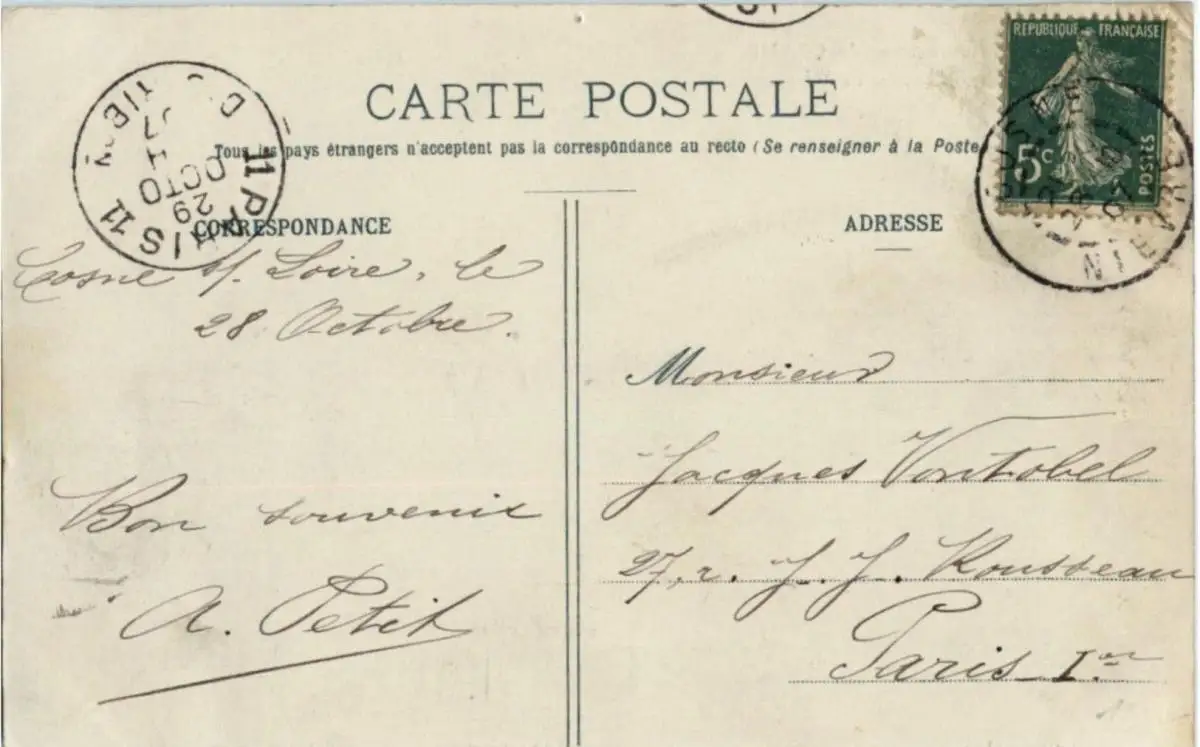 CARTE POSTALE
Tous les pays étrangers n'acceptent pas la correspondance au recto (Se renseigner à la Poste
CORRESPONDANCE
Cosne s/. Loire, le
28 Octobre.
Bon souvenir
A. Petit
ADRESSE
Monsieur
Jacques Vontobel
27, r. J. J. Rousseau
Paris Ier
RÉPUBLIQUE FRANÇAISE
5c
POSTES
PARIS 11
11
29
OCTO
NIÈVRE